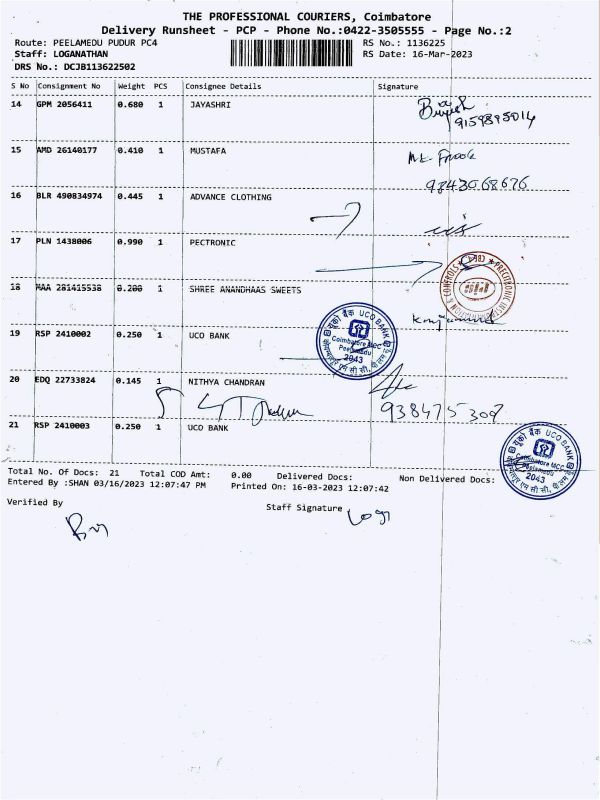 THE PROFESSIONAL COURIERS, Coimbatore
Delivery Runsheet - PCP - Phone No.:0422-3505555 - Page No.:2
Route: PEELAMEDU PUDUR PC4 RS No.: 1136225
Staff: LOGANATHAN RS Date: 16-Mar-2023
DRS No.: DCJB113622502
S No Consignment No Weight PCS Consignee Details Signature
14 GPM 2056411 0.680 1 JAYASHRI
9159895014
15 AMD 26140177 0.410 1 MUSTAFA
9843068676
16 BLR 490834974 0.445 1 ADVANCE CLOTHING
17 PLN 1438006 0.990 1 PECTRONIC
18 MAA 281415538 0.200 1 SHREE ANANDHAAS SWEETS
19 RSP 2410002 0.250 1 UCO BANK
यूको बैंक UCO BANK
Coimbatore MCC
Peelamedu
2043
20 EDQ 22733824 0.145 1 NITHYA CHANDRAN
938475309
21 RSP 2410003 0.250 1 UCO BANK
यूको बैंक UCO BANK
Coimbatore MCC
Peelamedu
2043
Total No. Of Docs: 21 Total COD Amt: 0.00 Delivered Docs: Non Delivered Docs:
Entered By :SHAN 03/16/2023 12:07:47 PM Printed On: 16-03-2023 12:07:42
Verified By Staff Signature Logi